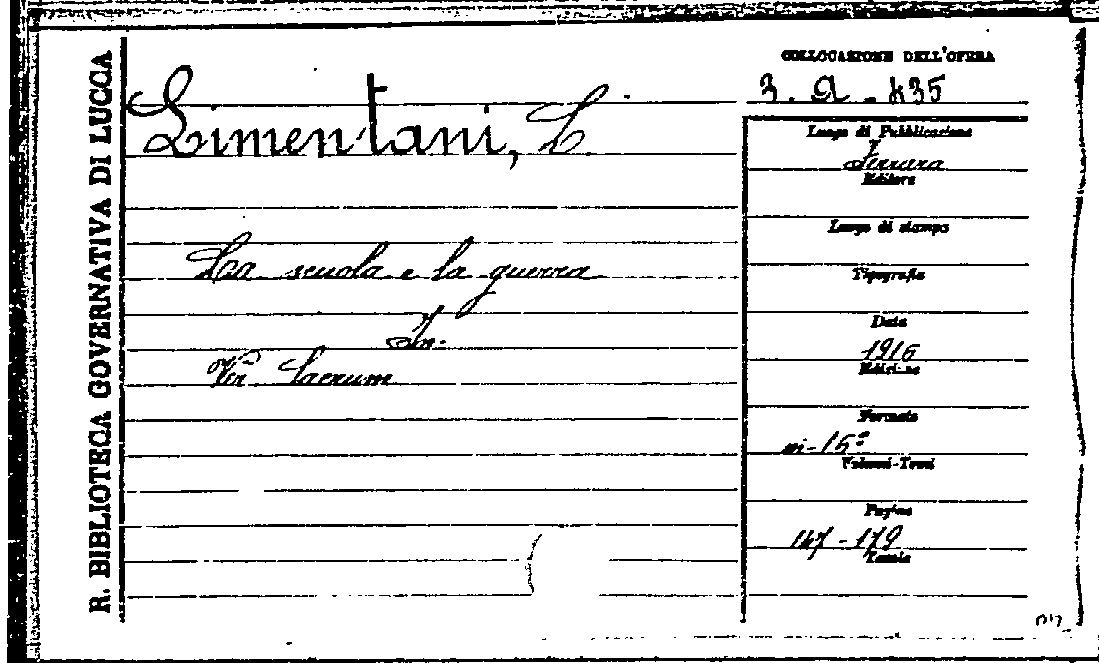 R. BIBLIOTECA GOVERNATIVA DI LUCCA
Limentani, L.
La scuola e la guerra
In:
Ver Sacrum
COLLOCAZIONE DELL'OPERA
3. a - 435
Luogo di Pubblicazione
Ferrara
Editore
Luogo di stampa
Tipografia
Data
1916
Edizione
Formato
in-16º
Volumi-Tomi
Pagine
147-179
Tavole